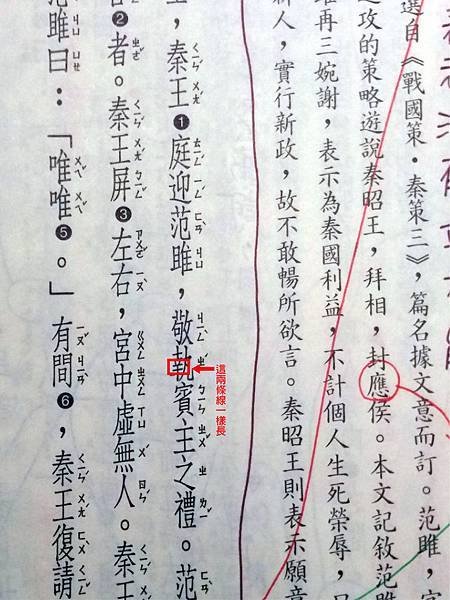 選自《戰國策·秦策三》，篇名據文意而訂。范雎，字
之攻的策略遊說秦昭王，拜相，封應侯。本文記敘范雎
雎再三婉謝，表示為秦國利益，不計個人生死榮辱，
新人，實行新政，故不敢暢所欲言。秦昭王則表示願意
，秦王❶庭迎范雎，敬執賓主之禮。范
這兩條線一樣長
❷者。秦王屏❸左右，宮中虛無人。秦王
范雎曰：「唯唯❺。」有間❻，秦王復請